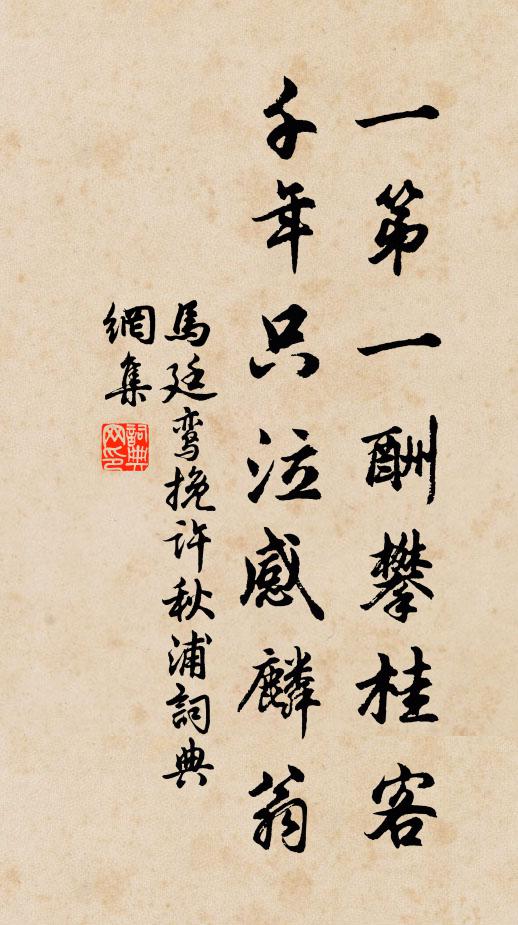 一第一酬攀桂客
千年只泣感麟翁
馬廷鸾挽许秋浦詞典
網集
詞典
网印